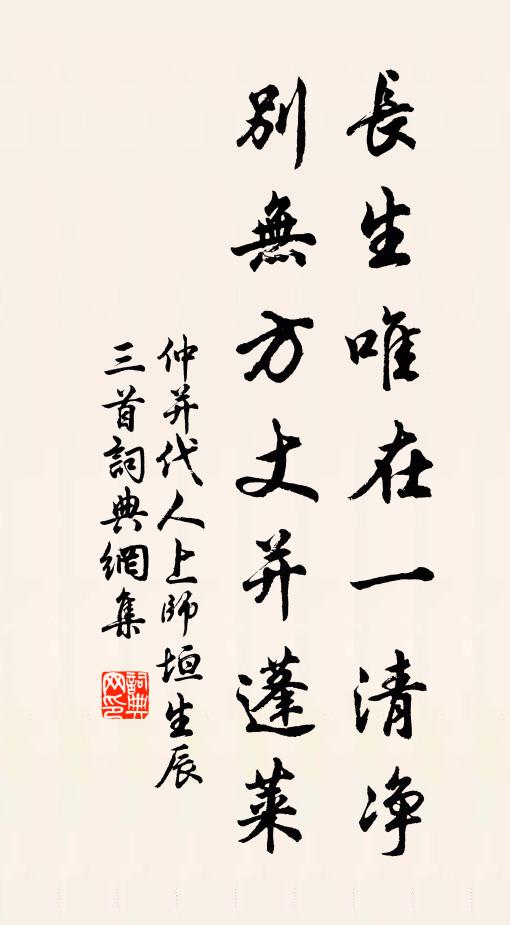 長生唯在一清净
別無方丈并蓬萊
仲并代人上師垣生辰
三首詞典網集
詞典網印